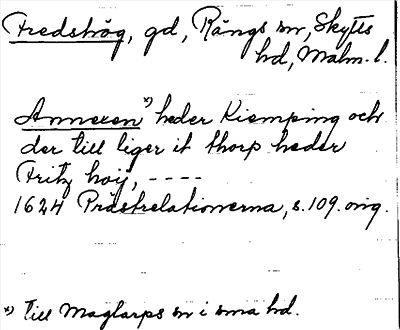 Fredshög, gd, Rängs sn, Skytts
hd, Malm. l.
Annexen *) heder Kiemping och
der till liger it thorp heder
Fritz høij, - - - -
1624 Prästrelationerna, s. 109. orig.
*) till Maglarps sn i sma hd.